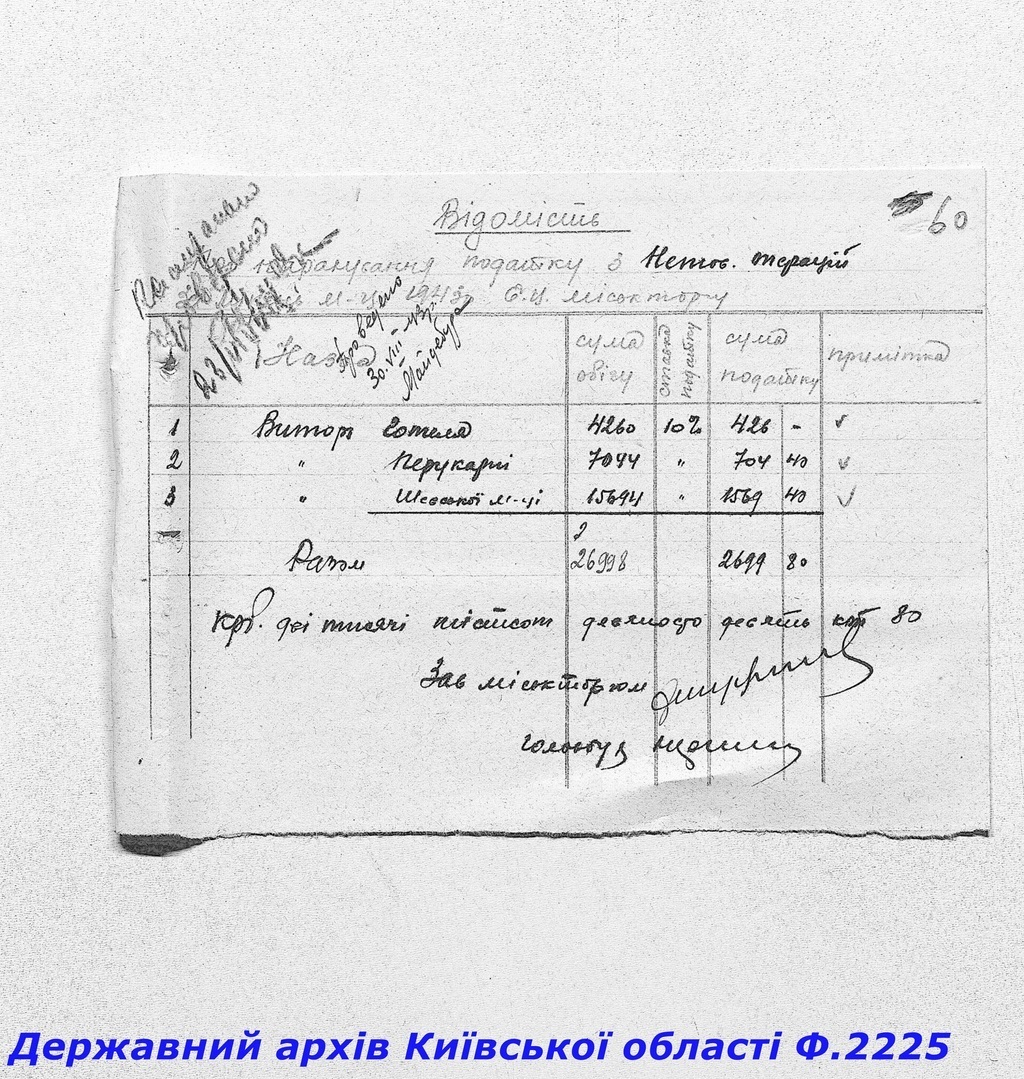 60
Відомість
нарахування податку з Нетов. операцій
м-ць 1943р. Б.Ц. міськторгу
Проведено
30.VIII 43р.
Майдебура
Назва
сума обігу
ставка податку
сума податку
примітка
1 Виторг Готеля 4260 10% 426 -
2 " Перукарні 7044 " 704 40
3 " Шевської м-ні 15694 " 1569 40
Разом 26998 2699 80
Крб. дві тисячі шістсот девяносто девять коп 80
Зав міськторгом
Голов бух
Державний архів Київської області Ф.2225